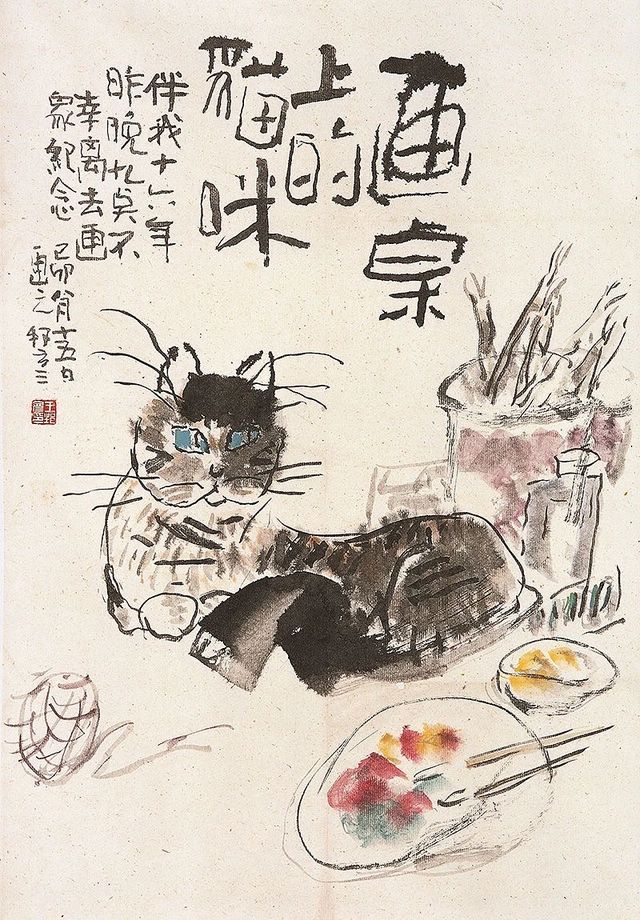 画桌
上的
貓咪
伴我十六年
昨晚九点不
幸离去画
象紀念
己卯月十五日